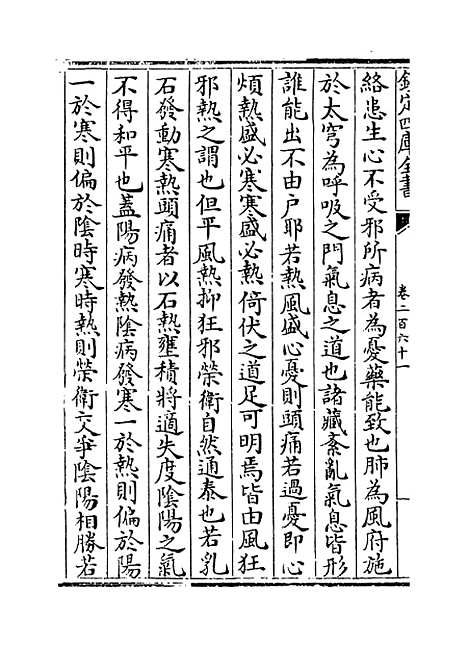 欽定四庫全書
卷二百六十一
絡患生心不受邪所病者為憂藥能致也肺為風府施
於太穹為呼吸之門氣息之道也諸藏紊亂氣息皆形
誰能出不由户耶若熱風盛心憂則頭痛若過憂即心
煩熱盛必寒寒盛必熱倚伏之道足可明焉皆由風狂
邪熱之謂也但平風熱抑狂邪榮衛自然通泰也若乳
石發動寒熱頭痛者以石熱壅積將適失度陰陽之氣
不得和平也蓋陽病發熱陰病發寒一於熱則偏於陽
一於寒則偏於陰時寒時熱則榮衛交爭陰陽相勝若